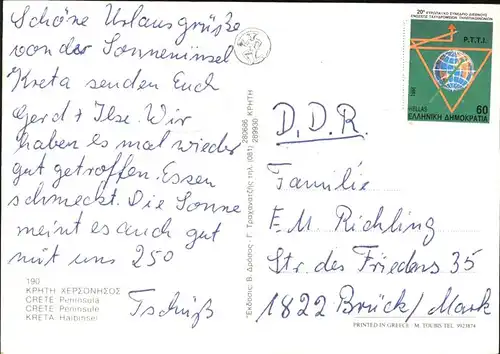 Schöne Urlausgrüße
von der Sonneninsel
Kreta senden Euch
Gerd + Ilse. Wir
haben es mal wieder
gut getroffen. Essen
schmeckt. Die Sonne
meint es auch gut
mit uns 250
Tschüß
190
ΚΡΗΤΗ ΧΕΡΣΟΝΗΣΟΣ
CRETE Peninsula
CRETE Peninsule
KRETA Halbinsel
Έκδοσις: Β. Δράσος - Γ. Τραχανατζής τηλ. (081) 280686 289930 ΚΡΗΤΗ
P.T.T.I.
1990
HELLAS 60
ΕΛΛΗΝΙΚΗ ΔΗΜΟΚΡΑΤΙΑ
D.D.R.
Familie
E.M. Richling
Str. des Friedens 35
1822 Brück/Mark
PRINTED IN GREECE - M. TOUBIS TEL. 9923874